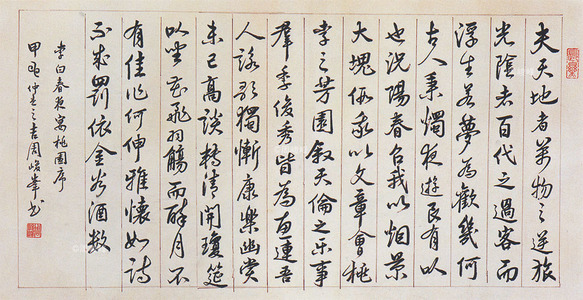 夫天地者萬物之逆旅
光陰者百代之過客而
浮生若夢為歡幾何
古人秉燭夜遊良有以
也況陽春召我以烟景
大塊假我以文章會桃
李之芳園敘天倫之樂事
羣季俊秀皆為惠連吾
人詠歌獨慚康樂幽賞
未已高談轉清開瓊筵
以坐花飛羽觴而醉月不
有佳作何伸雅懷如詩
不成罰依金谷酒數
李白春夜宴桃園序
甲仲春之吉周峻峯書